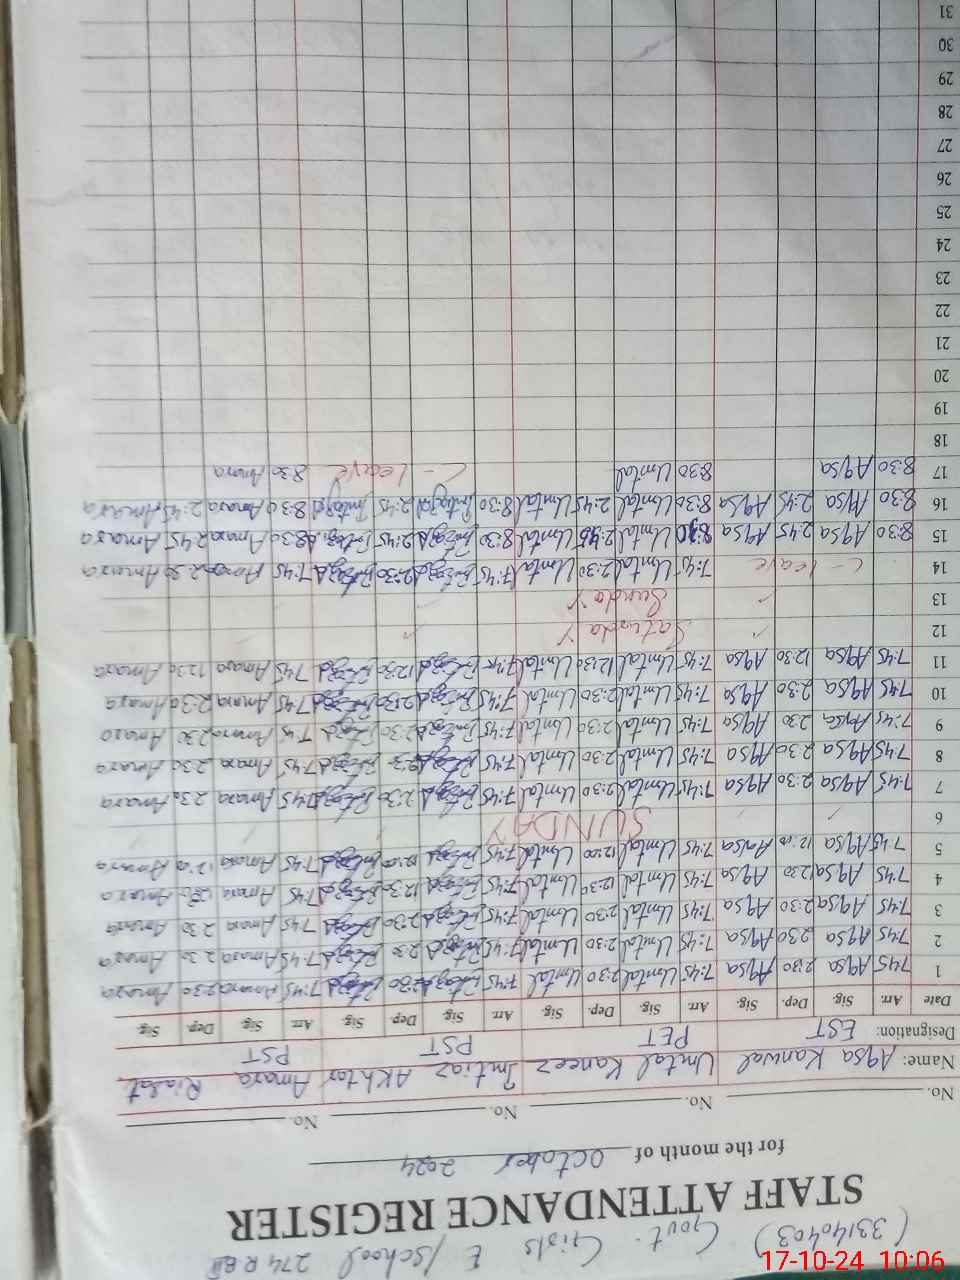 (33140403) Govt. Girls E/School 274 RB
STAFF ATTENDANCE REGISTER
for the month of October 2024
No. No. No. No.
Name: Aqsa Kanwal Umtal Kaneez Imtiaz Akhtar Amara Riasat
Designation: EST PET PST PST
Date Arr. Sig. Dep. Sig. Arr. Sig. Dep. Sig. Arr. Sig. Dep. Sig. Arr. Sig. Dep. Sig.
1 7:45 Aqsa 2:30 Aqsa 7:45 Umtal 2:30 Umtal 7:45 2:30 7:45 Amara 2:30 Amara
2 7:45 Aqsa 2:30 Aqsa 7:45 Umtal 2:30 Umtal 7:45 2:30 7:45 Amara 2:30 Amara
3 7:45 Aqsa 2:30 Aqsa 7:45 Umtal 2:30 Umtal 7:45 2:30 7:45 Amara 2:30 Amara
4 7:45 Aqsa 2:30 Aqsa 7:45 Umtal 12:30 Umtal 7:45 12:30 7:45 Amara Amara
5 7:45 Aqsa 12:00 Aqsa 7:45 Umtal 12:00 Umtal 7:45 12:00 7:45 Amara 12:00 Amara
6 SUNDAY
7 7:45 Aqsa 2:30 Aqsa 7:45 Umtal 2:30 Umtal 7:45 2:30 7:45 Amara 2:30 Amara
8 7:45 Aqsa 2:30 Aqsa 7:45 Umtal 2:30 Umtal 7:45 2:30 7:45 Amara 2:30 Amara
9 7:45 Aqsa 2:30 Aqsa 7:45 Umtal 2:30 Umtal 7:45 2:30 7:45 Amara 2:30 Amara
10 7:45 Aqsa 2:30 Aqsa 7:45 Umtal 2:30 Umtal 7:45 2:30 7:45 Amara 2:30 Amara
11 7:45 Aqsa 12:30 Aqsa 7:45 Umtal 12:30 Umtal 7:45 12:30 7:45 Amara 12:30 Amara
12 Saturday
13 Sunday
14 Leave 7:45 Umtal 2:30 Umtal 7:45 2:30 7:45 Amara 2:30 Amara
15 8:30 Aqsa 2:45 Aqsa 8:30 Umtal 2:45 Umtal 8:30 2:45 8:30 Amara 2:45 Amara
16 8:30 Aqsa 2:45 Aqsa 8:30 Umtal 2:45 Umtal 8:30 2:45 8:30 Amara 2:45 Amara
17 8:30 Aqsa 8:30 Umtal Leave 8:30 Amara
18
19
20
21
22
23
24
25
26
27
28
29
30
31
17-10-24 10:06